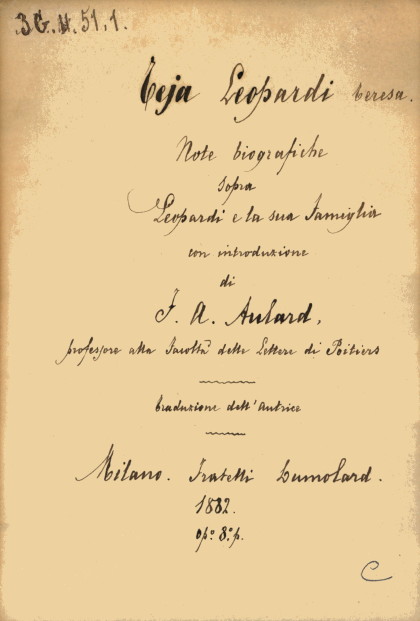 3G.H.51.1.
Teja Leopardi Teresa.
Note biografiche
sopra
Leopardi e la sua Famiglia
con introduzione
di
F. A. Aulard,
professore alla Facoltà delle Lettere di Poitiers
traduzione dell'Autrice
Milano. Fratelli Dumolard.
1882.
op.º 8.º p.
C